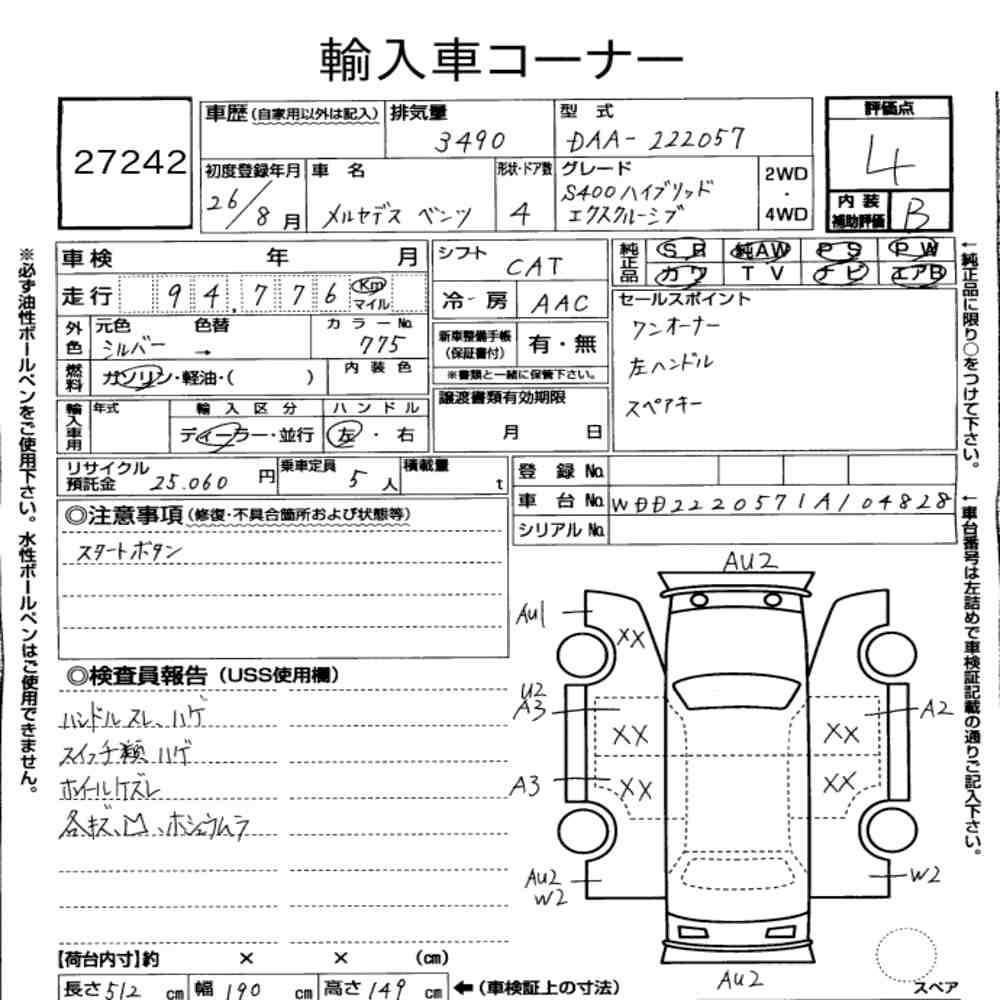 輸入車コーナー
27242
車歴(自家用以外は記入)
排気量
3490
型式
DAA-222057
評価点
4
初度登録年月
26/8月
車名
メルセデス ベンツ
形状・ドア数
4
グレード
S400ハイブリッド
エクスクルーシブ
2WD
・
4WD
内装
補助評価
B
車検 年 月
走行 94,776 Km
マイル
シフト
CAT
冷・房 AAC
純正品
SR 純AW PS PW
カワ TV ナビ エアB
外色
元色 色替
シルバー →
カラーNo.
775
燃料
ガソリン・軽油・( )
内装色
新車整備手帳
(保証書付)
有・無
※書類と一緒に保管下さい。
セールスポイント
ワンオーナー
左ハンドル
スペアキー
輸入車用
年式
輸入区分
ディーラー・並行
ハンドル
左・右
譲渡書類有効期限
月 日
リサイクル
預託金 25.060 円
乗車定員
5人
積載量
t
登録No.
車台No. WDD2220571A104828
シリアルNo.
◎注意事項(修復・不具合箇所および状態等)
スタートボタン
◎検査員報告(USS使用欄)
ハンドルスレ、ハゲ
スイッチ類ハゲ
ホイールケズレ
AU2
AU1
XX
U2
A3
XX
XX
A2
A3
XX
XX
AU2
W2
W2
AU2
スペア
【荷台内寸】約 × × (cm)
長さ512cm 幅190cm 高さ149cm ←(車検証上の寸法)
※必ず油性ボールペンをご使用下さい。水性ボールペンはご使用できません。
←純正品に限り○をつけて下さい。
←車台番号は左詰めで車検証記載の通りご記入下さい。